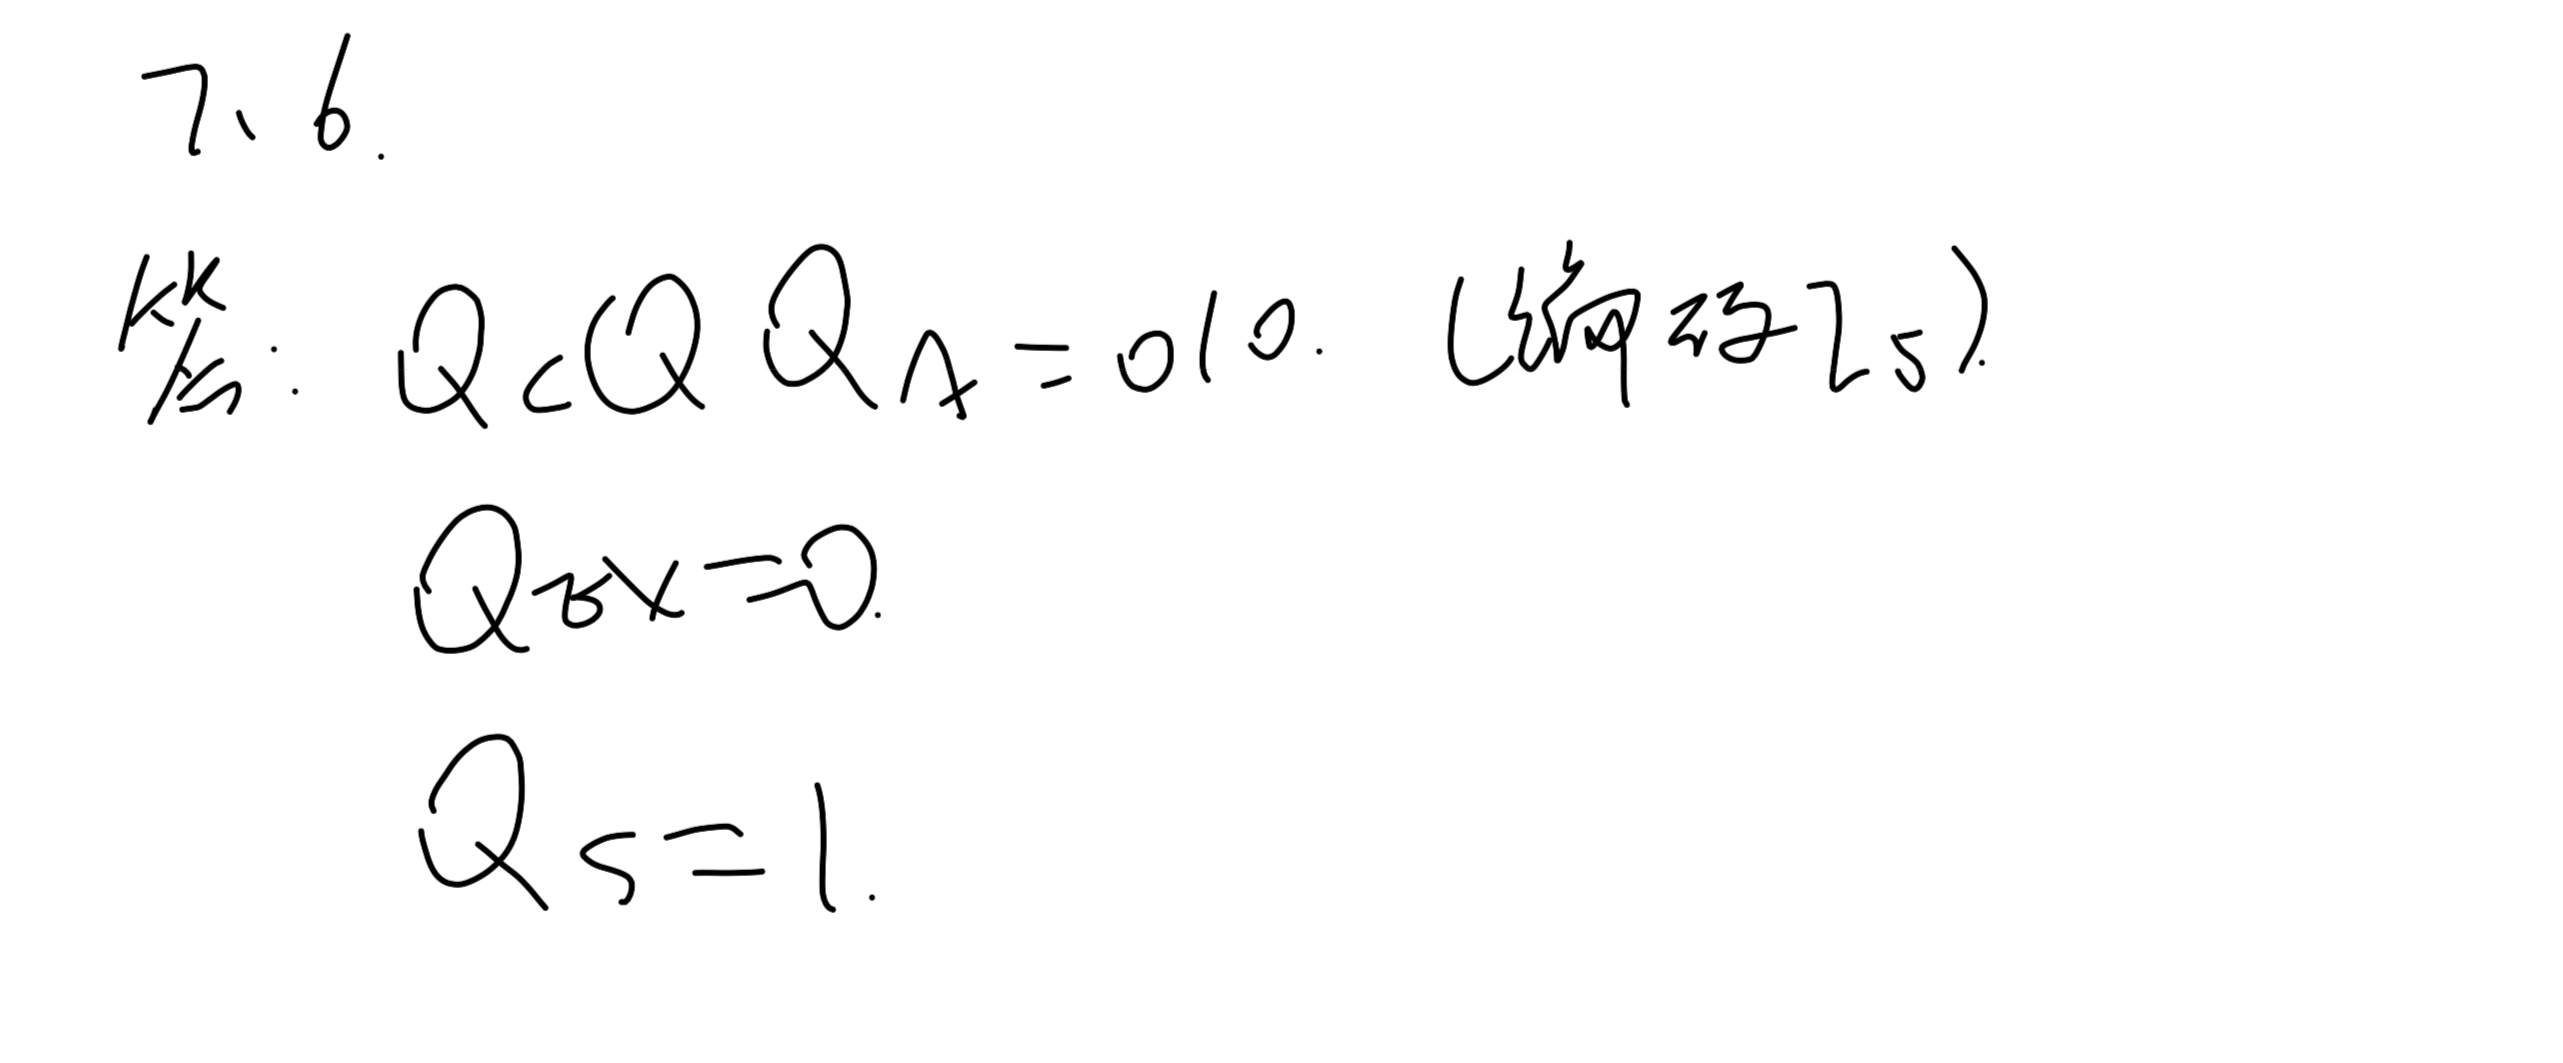 7、6.
答: QcQ QA=010. (编码I5).
QEX=0.
QS=1.